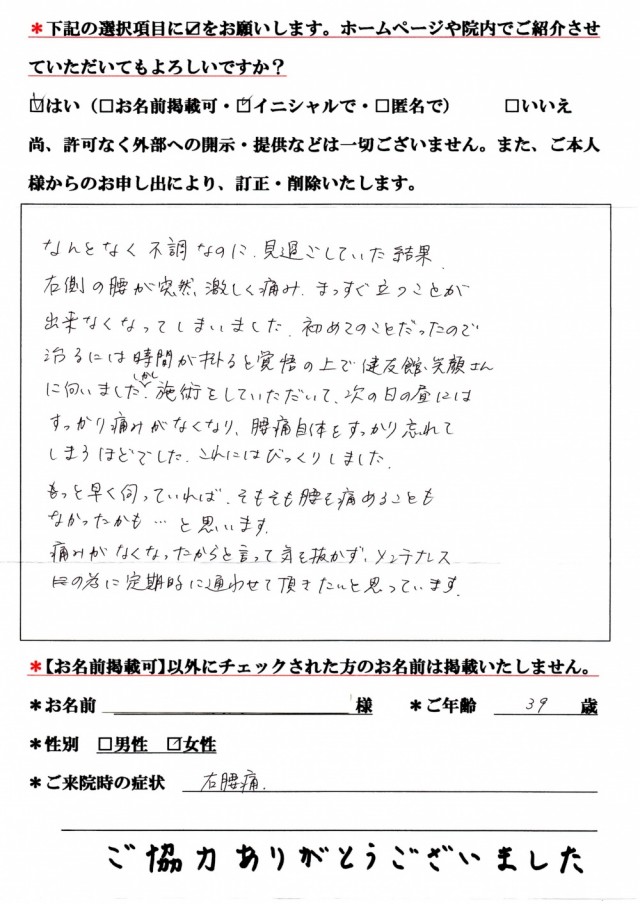 ＊下記の選択項目に☑をお願いします。ホームページや院内でご紹介させ
ていただいてもよろしいですか？
☑はい（□お名前掲載可・☑イニシャルで・□匿名で）　□いいえ
尚、許可なく外部への開示・提供などは一切ございません。また、ご本人
様からのお申し出により、訂正・削除いたします。
なんとなく不調なのに、見過ごしていた結果、
右側の腰が突然、激しく痛み、まっすぐ立つことが
出来なくなってしまいました。初めてのことだったので
治るには時間が掛ると覚悟の上で健友館、笑顔さん
に伺いました。しかし施術をしていただいて、次の日の昼には
すっかり痛みがなくなり、腰痛自体をすっかり忘れて
しまうほどでした。これにはびっくりしました。
もっと早く伺っていれば、そもそも腰を痛めることも
なかったかも…と思います。
痛みがなくなったからと言って気を抜かず、メンテナンス
の為に定期的に通わせて頂きたいと思っています。
＊【お名前掲載可】以外にチェックされた方のお名前は掲載いたしません。
＊お名前　様　＊ご年齢　39　歳
＊性別　□男性　☑女性
＊ご来院時の症状　右腰痛.
ご協力ありがとうございました